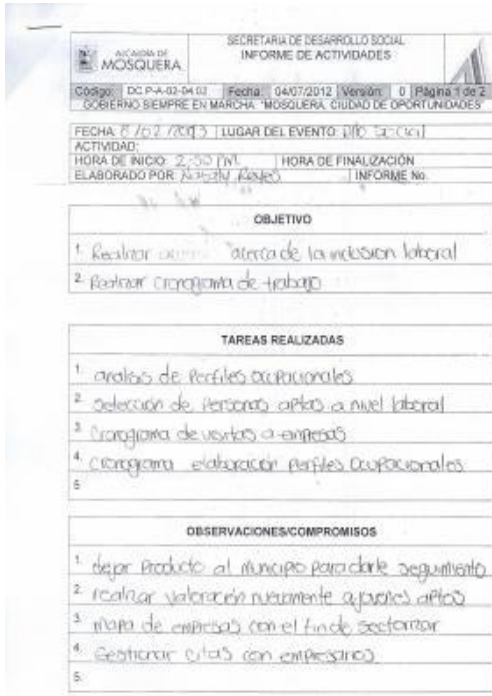 SECRETARIA DE DESARROLLO SOCIAL
INFORME DE ACTIVIDADES
ALCALDÍA DE
MOSQUERA
Código: DC.P-A-02-04.03 Fecha: 04/07/2012 Versión: 0 Página 1 de 2
GOBIERNO SIEMPRE EN MARCHA. "MOSQUERA, CIUDAD DE OPORTUNIDADES"
FECHA 8/02/2013 LUGAR DEL EVENTO: Dllo Social
ACTIVIDAD:
HORA DE INICIO: 2:30 PM HORA DE FINALIZACIÓN
ELABORADO POR: Nataly Reyes INFORME No.
OBJETIVO
1. Realizar acerca de la inclusion laboral
2. Realizar cronograma de trabajo
TAREAS REALIZADAS
1. analisis de Perfiles ocupacionales
2. selección de Personas aptas a nivel laboral
3. Cronograma de visitas a empresas
4. cronograma elaboración perfiles Ocupacionales
5.
OBSERVACIONES/COMPROMISOS
1. dejar Producto al municipio para darle seguimiento
2. realizar valoración nuevamente a jovenes aptos
3. mapa de empresas con el fin de sectorizar
4. Gestionar citas con empresarios
5.